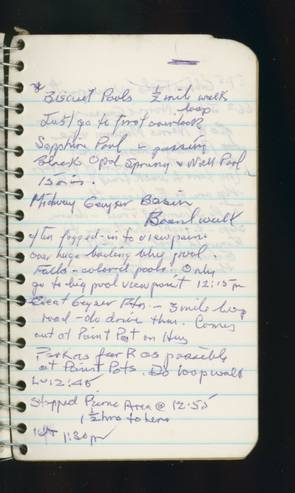 * Biscuit Pools ½ mile walk
loop
Just go to first overlook
Sapphire Pool & passing
Black Opal Spring & Wall Pool
15 min.
Midway Geyser Basin
Boardwalk
fogged-in to viewpoint
over huge boiling blue pool.
Falls - colored pools. Only
go to big pool viewpoint 12:15 pm
Great Geyser - 3 mile loop
road - do drive thru. Comes
out at Paint Pot on Hwy
Park as far R as possible
at Paint Pots. Do loop walk
12:45
Stopped Picnic Area @ 12:55
1½ hrs to here
1:30 pm